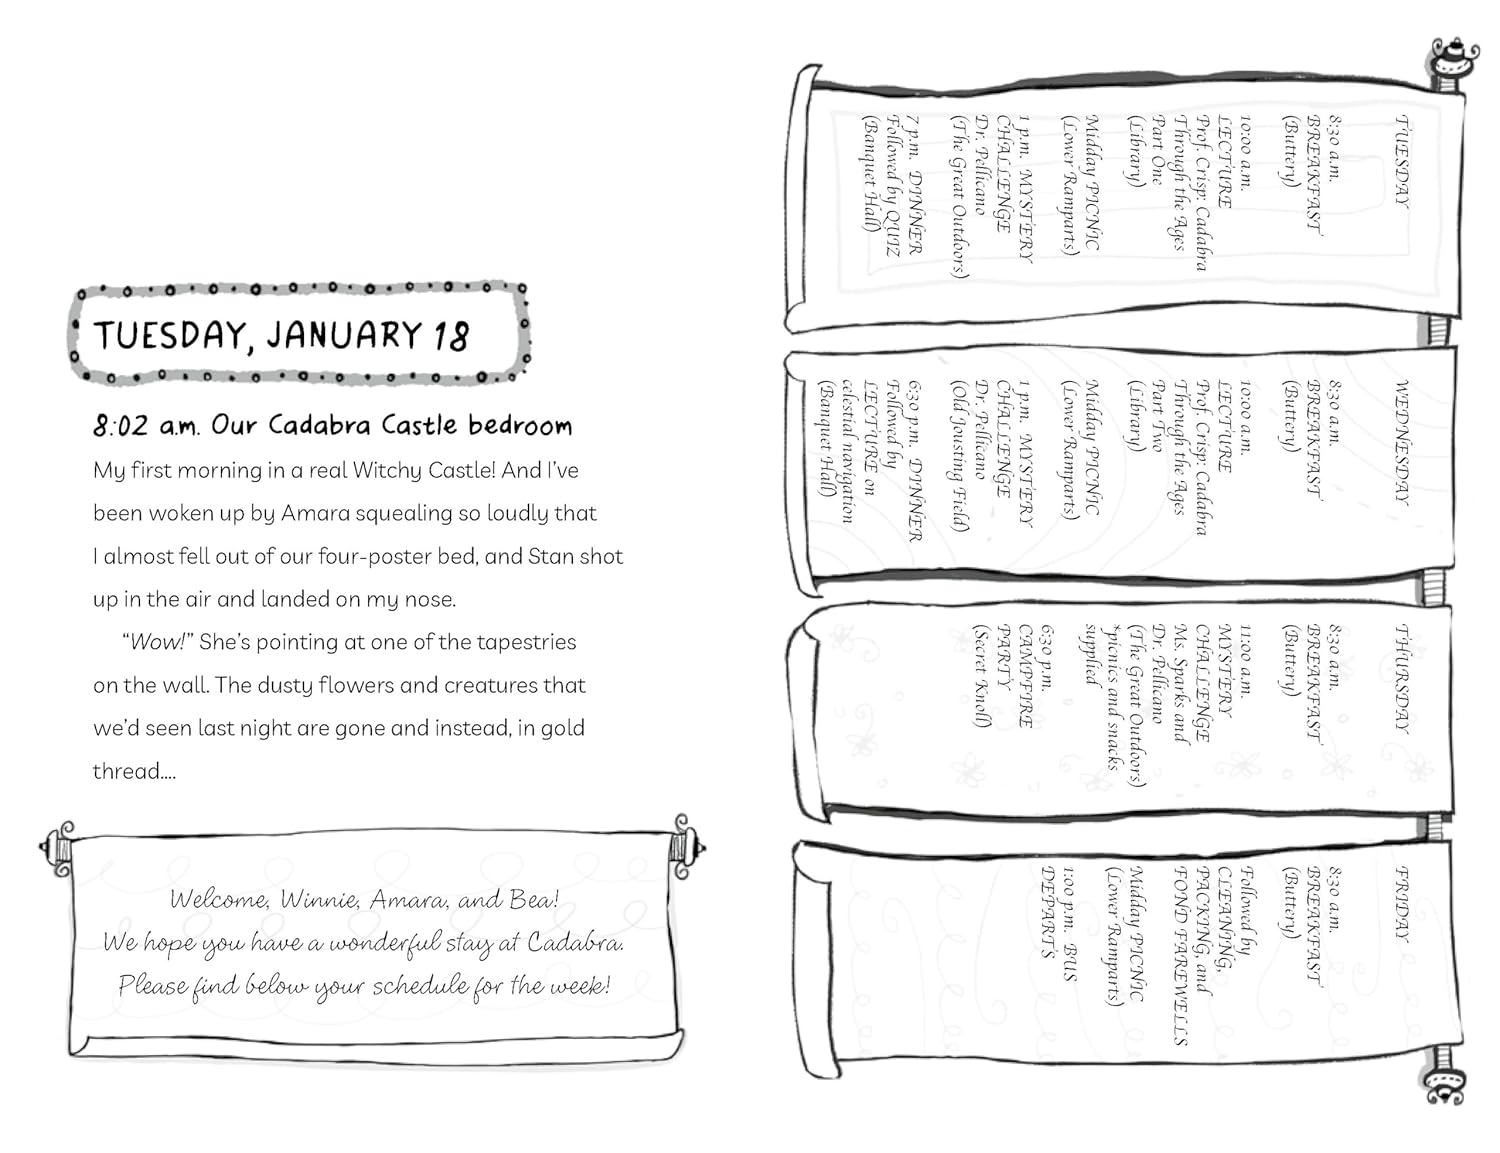 TUESDAY, JANUARY 18
8:02 a.m. Our Cadabra Castle bedroom
My first morning in a real Witchy Castle! And I've
been woken up by Amara squealing so loudly that
I almost fell out of our four-poster bed, and Stan shot
up in the air and landed on my nose.
"Wow!" She's pointing at one of the tapestries
on the wall. The dusty flowers and creatures that
we'd seen last night are gone and instead, in gold
thread....
Welcome, Winnie, Amara, and Bea!
We hope you have a wonderful stay at Cadabra.
Please find below your schedule for the week!
TUESDAY
8:30 a.m.
BREAKFAST
(Buttery)
10:00 a.m.
LECTURE
Prof. Crisp: Cadabra
Through the Ages
Part One
(Library)
Midday PICNIC
(Lower Ramparts)
1 p.m. MYSTERY
CHALLENGE
Dr. Pellicano
(The Great Outdoors)
7 p.m. DINNER
Followed by QUIZ
(Banquet Hall)
WEDNESDAY
8:30 a.m.
BREAKFAST
(Buttery)
10:00 a.m.
LECTURE
Prof. Crisp: Cadabra
Through the Ages
Part Two
(Library)
Midday PICNIC
(Lower Ramparts)
1 p.m. MYSTERY
CHALLENGE
Dr. Pellicano
(Old Jousting Field)
6:30 p.m. DINNER
Followed by
LECTURE on
celestial navigation
(Banquet Hall)
THURSDAY
8:30 a.m.
BREAKFAST
(Buttery)
11:00 a.m.
MYSTERY
CHALLENGE
Ms. Sparks and
Dr. Pellicano
(The Great Outdoors)
*picnics and snacks
supplied
6:30 p.m.
CAMPFIRE
PARTY
(Secret Knoll)
FRIDAY
8:30 a.m.
BREAKFAST
(Buttery)
Followed by
CLEANING,
PACKING, and
FOND FAREWELLS
Midday PICNIC
(Lower Ramparts)
1:00 p.m. BUS
DEPARTS